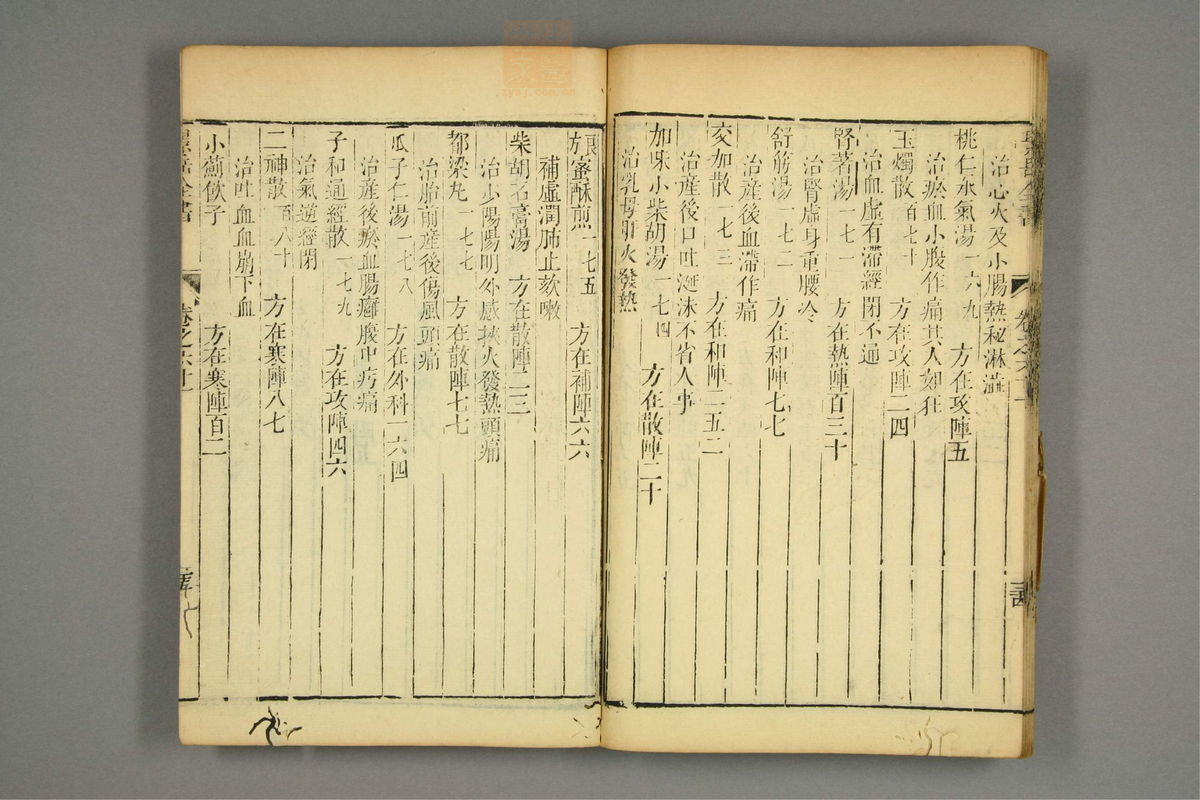 景岳全書
卷之六十一
治心火及小腸熱秘淋澁
桃仁承氣湯 一六九 方在攻陣五
治瘀血小腹作痛其人如狂
玉燭散 百七十 方在攻陣二四
治血虛有滯經閉不通
腎著湯 一七一 方在熱陣百三十
治腎虛身重腰冷
舒筋湯 一七二 方在和陣七七
治產後血滯作痛
交加散 一七三 方在和陣二五二
治產後口吐涎沫不省人事
加味小柴胡湯 一七四 方在散陣二十
治乳母肝火發熱
蜜酥煎 一七五 方在補陣六六
補虛潤肺止欬嗽
柴胡石膏湯 方在散陣二三
治少陽陽明外感挾火發熱頭痛
都梁丸 一七七 方在散陣七七
治胎前產後傷風頭痛
瓜子仁湯 一七八 方在外科一六四
治產後瘀血腸癰腹中㽲痛
子和通經散 一七九 方在攻陣四六
治氣逆經閉
二神散 百八十 方在寒陣八七
治吐血血崩下血
小薊飲子 方在寒陣百二
景岳全書
卷之六十一
zysj.com.cn